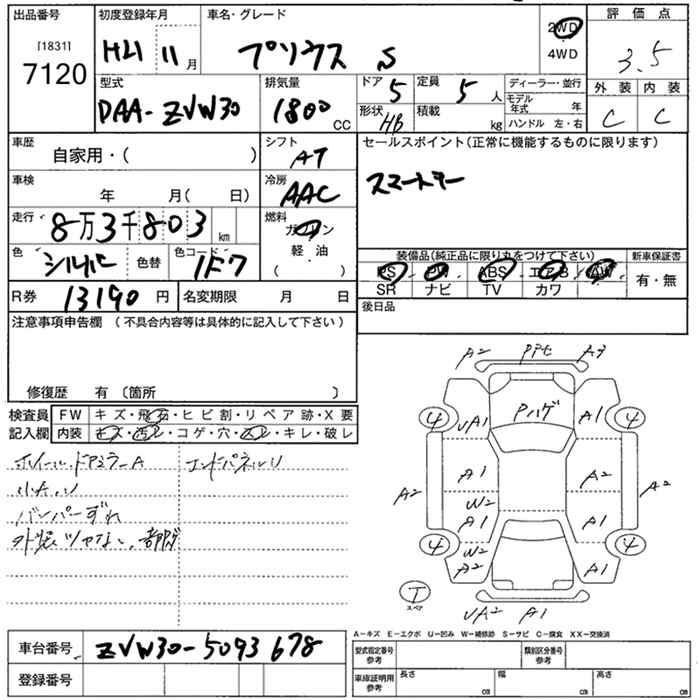 出品番号 初度登録年月 車名・グレード 評価点
[1831]
7120
H21 11月 プリウス S
2WD
4WD
3.5
型式 排気量 ドア 定員 ディーラー・並行 外装 内装
DAA-ZVW30 1800CC 5 5人
モデル年式 年
形状 HB 積載 kg ハンドル 左・右
C C
車歴 シフト セールスポイント(正常に機能するものに限ります)
自家用・( ) AT
スマートキー
車検 冷房
年 月(日) AAC
走行 燃料
8万3千803km ガソリン
軽・油
( )
色 シルバー 色替 色コード 1F7
装備品(純正品に限り丸をつけて下さい) 新車保証書
PS PW ABS エアB AW 有・無
SR ナビ TV カワ
R券 13190円 名変期限 月 日
後日品
注意事項申告欄(不具合内容等は具体的に記入して下さい)
修復歴 有〔箇所 〕
検査員 FW キズ・飛石・ヒビ割・リペア跡・X要
記入欄 内装 キズ・汚レ・コゲ・穴・スレ・キレ・破レ
ホイール・ドアミラーA エンドパネルU
小キズU
バンパーずれ
外装ツヤなし、部ハゲ
A2 PPセ A3
Pハゲ
4 UA1 A1 4
A1 A2
A2 W2 A2
A1 A1
4 W2 4
A2 A1
T
スペア
UA2 A1
A-キズ E-エクボ U-凹み W-補修跡 S-サビ C-腐食 XX-交換済
車台番号 ZVW30-5093678
型式指定番号 参考 類別区分番号 参考
登録番号
車庫証明用 参考 長さ cm 幅 cm 高さ cm